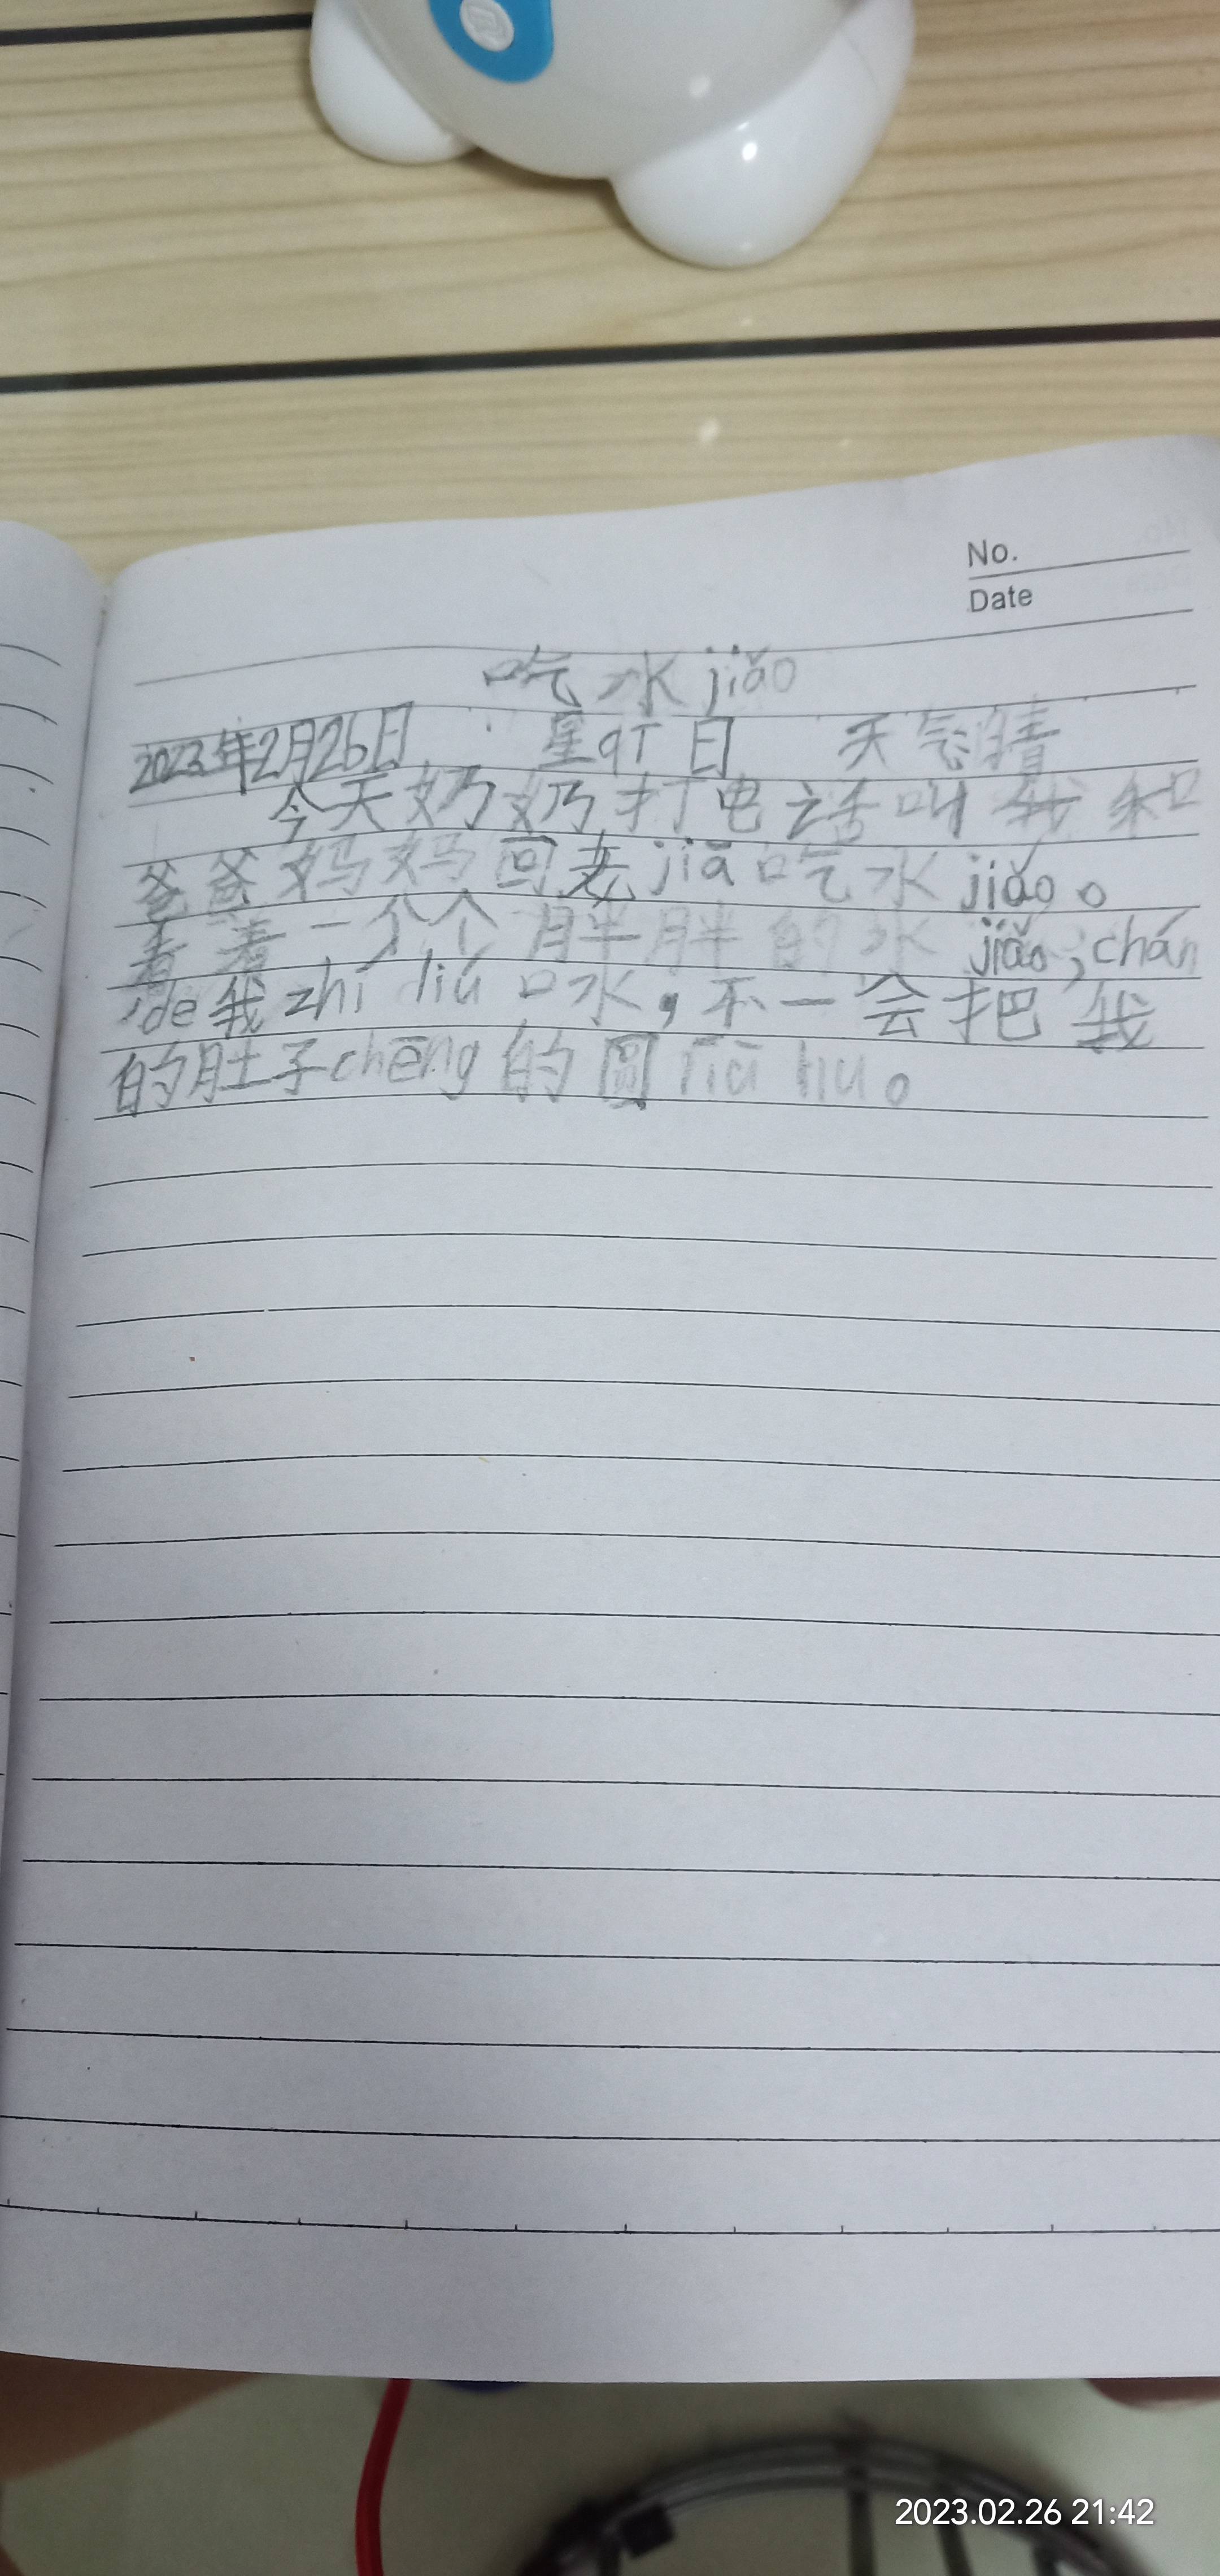 No.
Date
吃水jiǎo
2023年2月26日 星qī日 天气晴
今天奶奶打电话叫我和
爸爸妈妈回老jiā吃水jiǎo。
看着一个个胖胖的水jiǎo,chán
de我zhí liú口水,不一会把我
的肚子chēng的圆liū liu。
2023.02.26 21:42